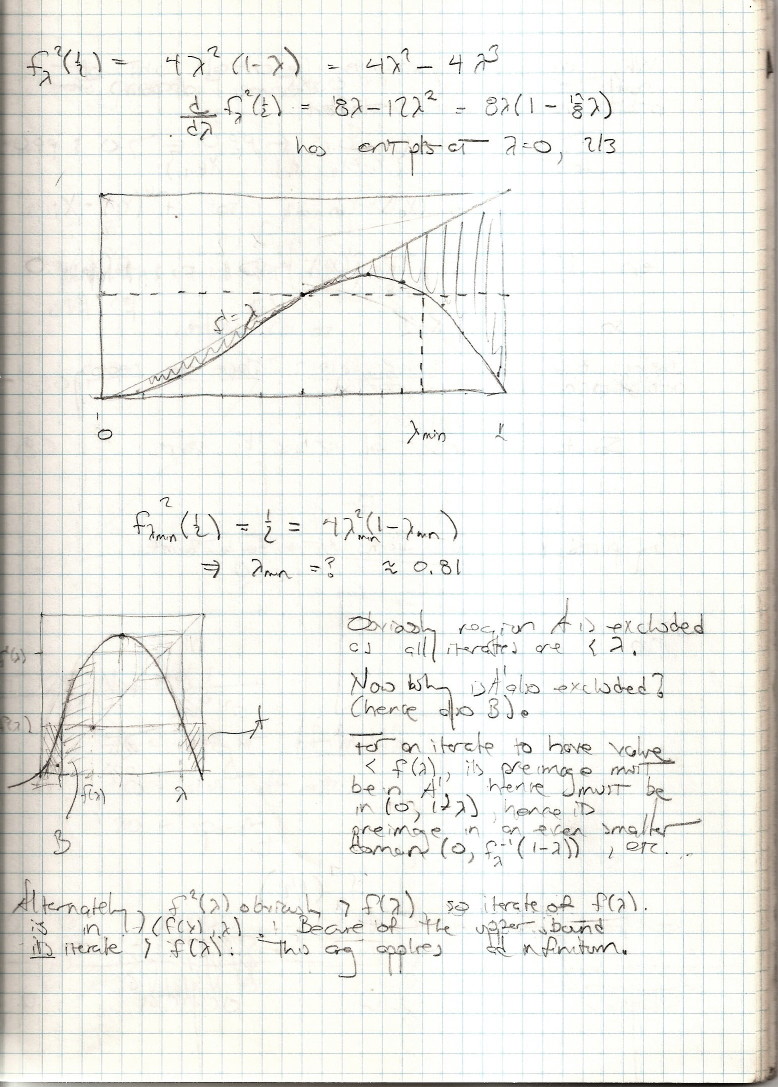 f_λ²(½) = 4λ²(1-λ) = 4λ² - 4λ³
d/dλ f_λ²(½) = 8λ - 12λ² = 8λ(1 - 12/8 λ)
has crit pts at λ=0, 2/3
f = λ
0 λmin 1
f²_λmin(½) = ½ = 4λ²min(1-λmin)
⇒ λmin = ? ≈ 0.81
Obviously region A is excluded
as all iterates are < λ.
Now why is A' also excluded?
(hence also B).
For an iterate to have value
< f(λ), its preimage must
be in A', hence must be
in (0, 1-λ), hence its
preimage in an even smaller
domain (0, f_λ⁻¹(1-λ)), etc...
A
f(λ) λ
B
Alternately, f²(λ) obviously > f(λ) so iterate of f(λ).
is in (f(λ), λ). Because of the upper bound
its iterate > f(λ). This arg applies ad nfinitum.